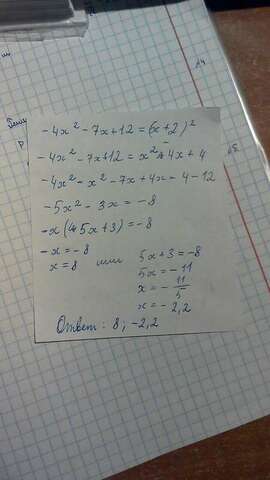 -4x² - 7x + 12 = (x + 2)²
-4x² - 7x + 12 = x² + 4x + 4
-4x² - x² - 7x + 4x = 4 - 12
-5x² - 3x = -8
-x(5x + 3) = -8
-x = -8
x = 8
или
5x + 3 = -8
5x = -11
x = -11/5
x = -2,2
Ответ: 8; -2,2